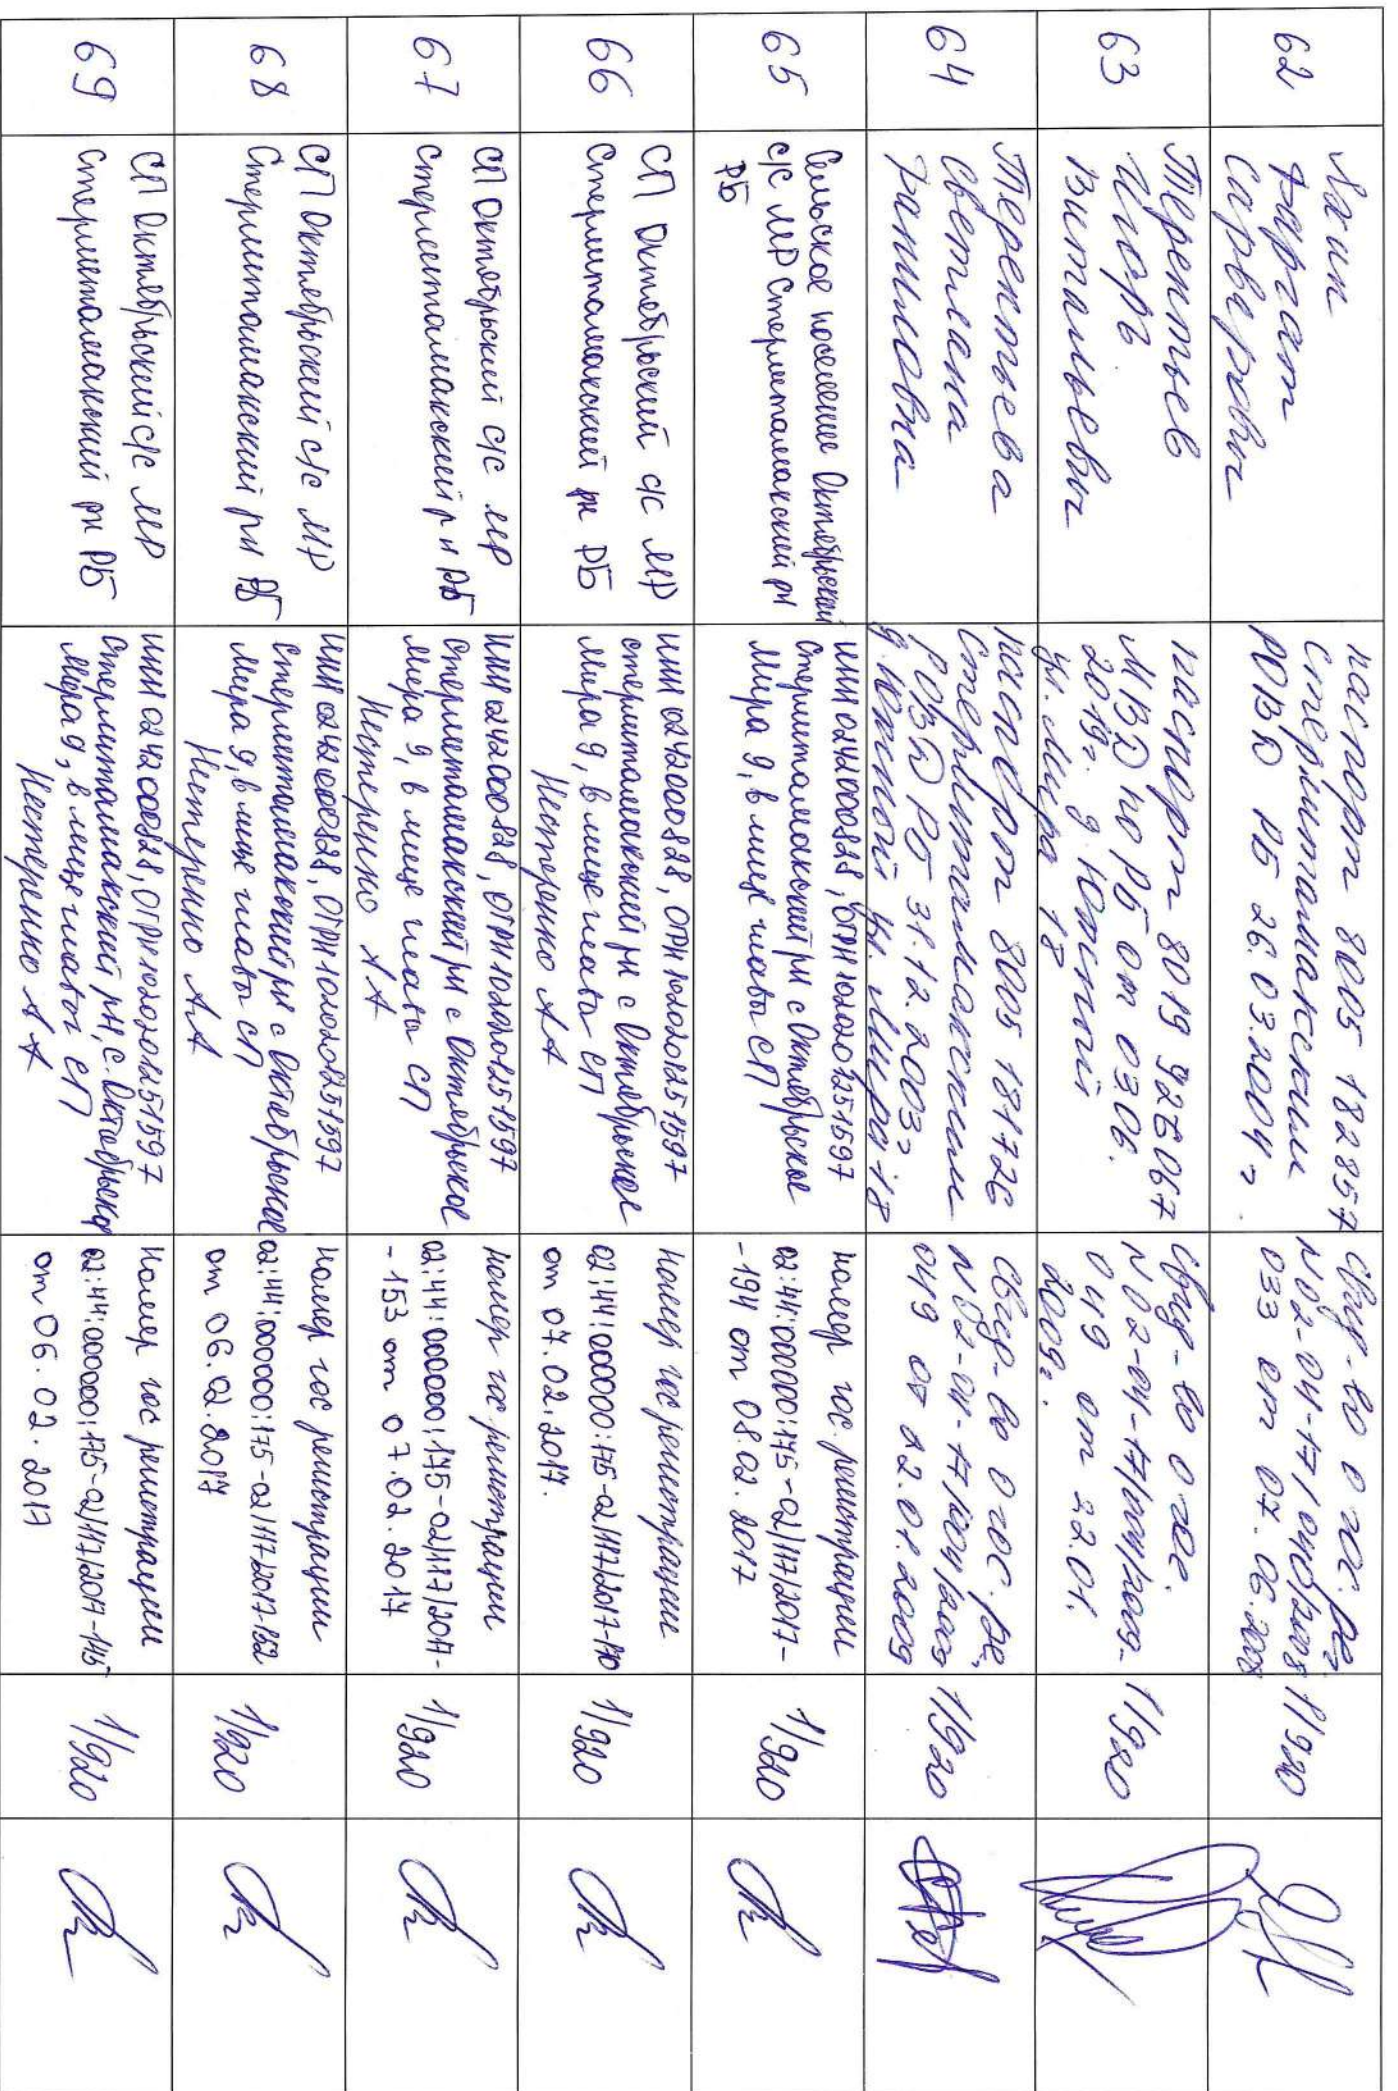 62
Фаргат
Сарварович
паспорт 8005 182857
Стерлитамакским
РОВД РБ 26.03.2004 г
Свид-во о гос. рег
№02-04-17/040/2008
033 от 07.06.2008
1/920
63
Терентьев
Игорь
Витальевич
паспорт 8019 925067
МВД по РБ от 03.06.
2019г. д. Ютютой
ул. Мира 18
Свид-во о гос.
№02-04-17/004/2009-
049 от 22.01.
2009г.
1/920
64
Терентьева
Светлана
паспорт 8005 181726
Стерлитамакским
РОВД РБ 31.12.2003г
ул. Мира 18
Свид-во о гос. ре.
№02-04-17/004/2009
049 от 22.01.2009
1/920
65
Сельское поселение Октябрьский
с/с МР Стерлитамакский рн
РБ
ИНН 0242000828, ОГРН 1020201251597
Стерлитамакский рн с Октябрьское
Мира 9, в лице главы СП
номер гос. регистрации
02:44:000000:175-02/117/2017-
-194 от 08.02.2017
1/920
66
СП Октябрьский с/с МР
Стерлитамакский рн РБ
ИНН 0242000828, ОГРН 1020201251597
Стерлитамакский рн с Октябрьское
Мира 9, в лице главы СП
Нестеренко АА
номер гос регистрации
02:44:000000:175-02/117/2017-170
от 07.02.2017.
1/920
67
СП Октябрьский с/с МР
Стерлитамакский рн РБ
ИНН 0242000828, ОГРН 1020201251597
Стерлитамакский рн с Октябрьское
Мира 9, в лице главы СП
Нестеренко АА
номер гос регистрации
02:44:000000:175-02/117/2017-
-153 от 07.02.2017
1/920
68
СП Октябрьский с/с МР
Стерлитамакский рн РБ
ИНН 0242000828, ОГРН 1020201251597
Стерлитамакский рн с Октябрьское
Мира 9, в лице главы СП
Нестеренко А.А
номер гос регистрации
02:44:000000:175-02/117/2017-152
от 06.02.2017
1/920
69
СП Октябрьский с/с МР
Стерлитамакский рн РБ
ИНН 0242000828, ОГРН 1020201251597
Стерлитамакский рн, с. Октябрьское
Мира 9, в лице главы СП
Нестеренко А А
номер гос регистрации
02:44:000000:175-02/117/2017-145
от 06.02.2017
1/920